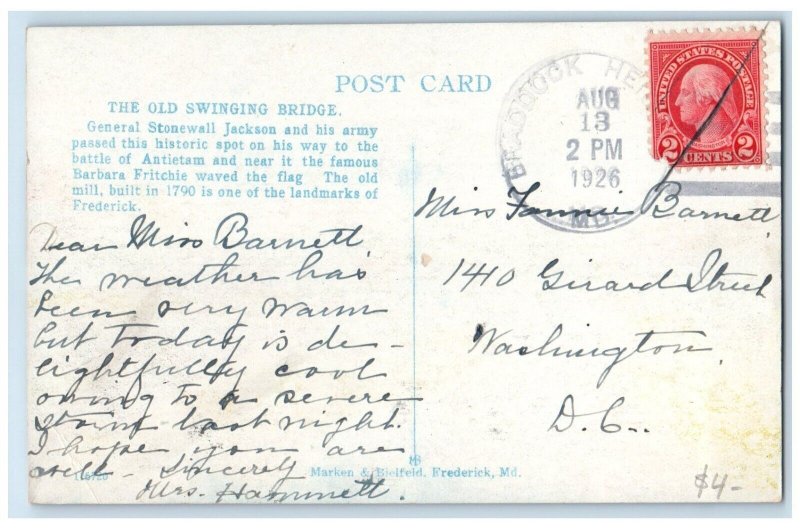 POST CARD
THE OLD SWINGING BRIDGE.
General Stonewall Jackson and his army
passed this historic spot on his way to the
battle of Antietam and near it the famous
Barbara Fritchie waved the flag The old
mill, built in 1790 is one of the landmarks of
Frederick.
Dear Miss Barnett,
The weather has
been very warm
but today is de-
lightfully cool
owing to a severe
storm last night.
I hope you are
well - Sincerely
Mrs. Hammett.
BRADDOCK HE
AUG
13
2 PM
1926
MD.
UNITED STATES POSTAGE
WASHINGTON
2 CENTS 2
Miss Fannie Barnett
1410 Girard Street
Washington
D.C.
Marken & Bielfeld, Frederick, Md.
$4-